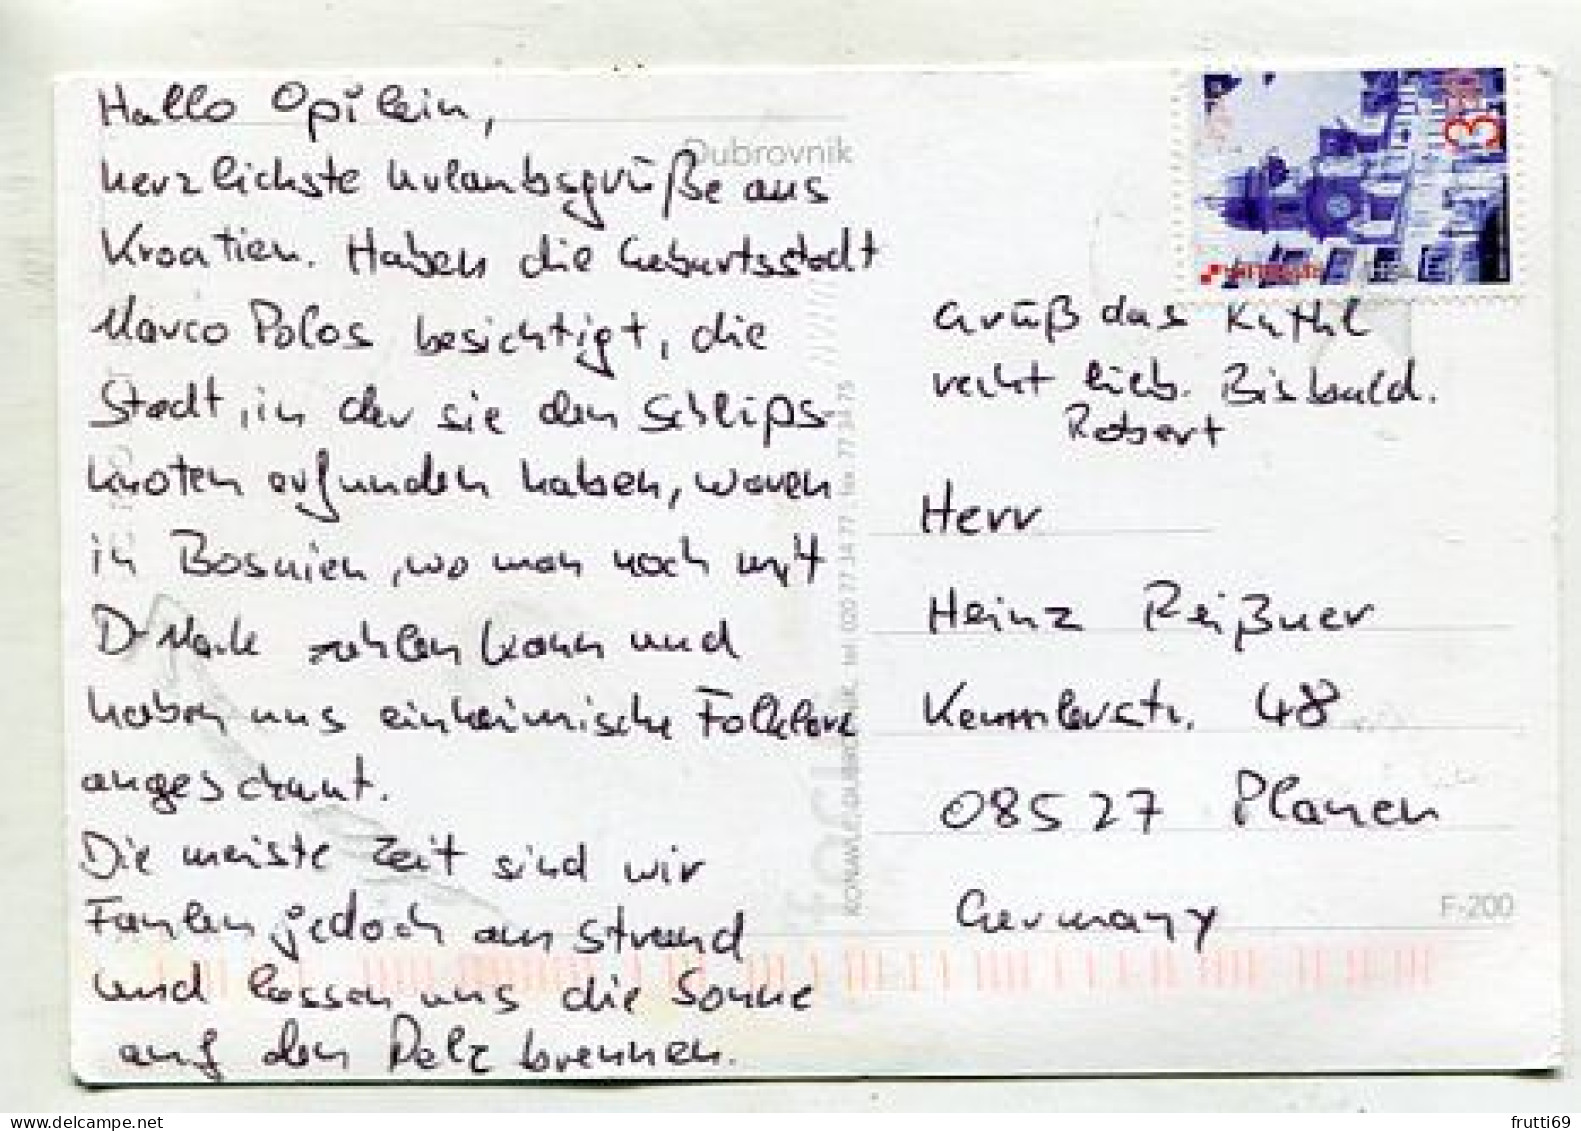 Hallo Opilein,
herzlichste Urlaubsgrüße aus
Kroatien. Haben die Geburtsstadt
Marco Polos besichtigt, die
Stadt, in der sie den Schlips-
knoten erfunden haben, waren
in Bosnien, wo man noch mit
D-Mark zahlen kann und
haben uns einheimische Folklore
angeschaut.
Die meiste Zeit sind wir
Faulen jedoch am Strand
und lassen uns die Sonne
auf den Pelz brennen.
Dubrovnik
tel. 020 77 34 77, fax 77 34 75
Grüß das Kathl
recht lieb. Bis bald.
Robert
Herr
Heinz Reißner
Kemmlerstr. 48
08527 Plauen
Germany
F-200
frutti69